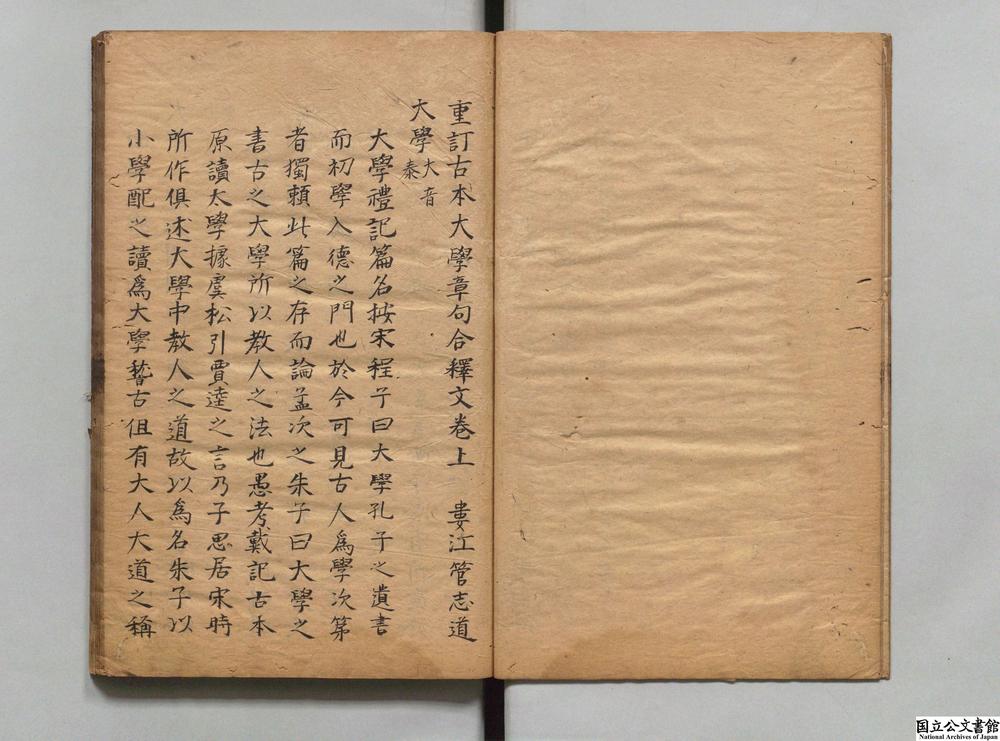 重訂古本大學章句合釋文卷上　婁江管志道
大學大音泰
大學禮記篇名按宋程子曰大學孔子之遺書
而初學入德之門也於今可見古人爲學次第
者獨頼此篇之存而論孟次之朱子曰大學之
書古之大學所以教人之法也愚考戴記古本
原讀太學據虞松引賈逵之言乃子思居宋時
所作俱述大學中教人之道故以爲名朱子以
小學配之讀爲大學稽古但有大人大道之稱
国立公文書館
National Archives of Japan